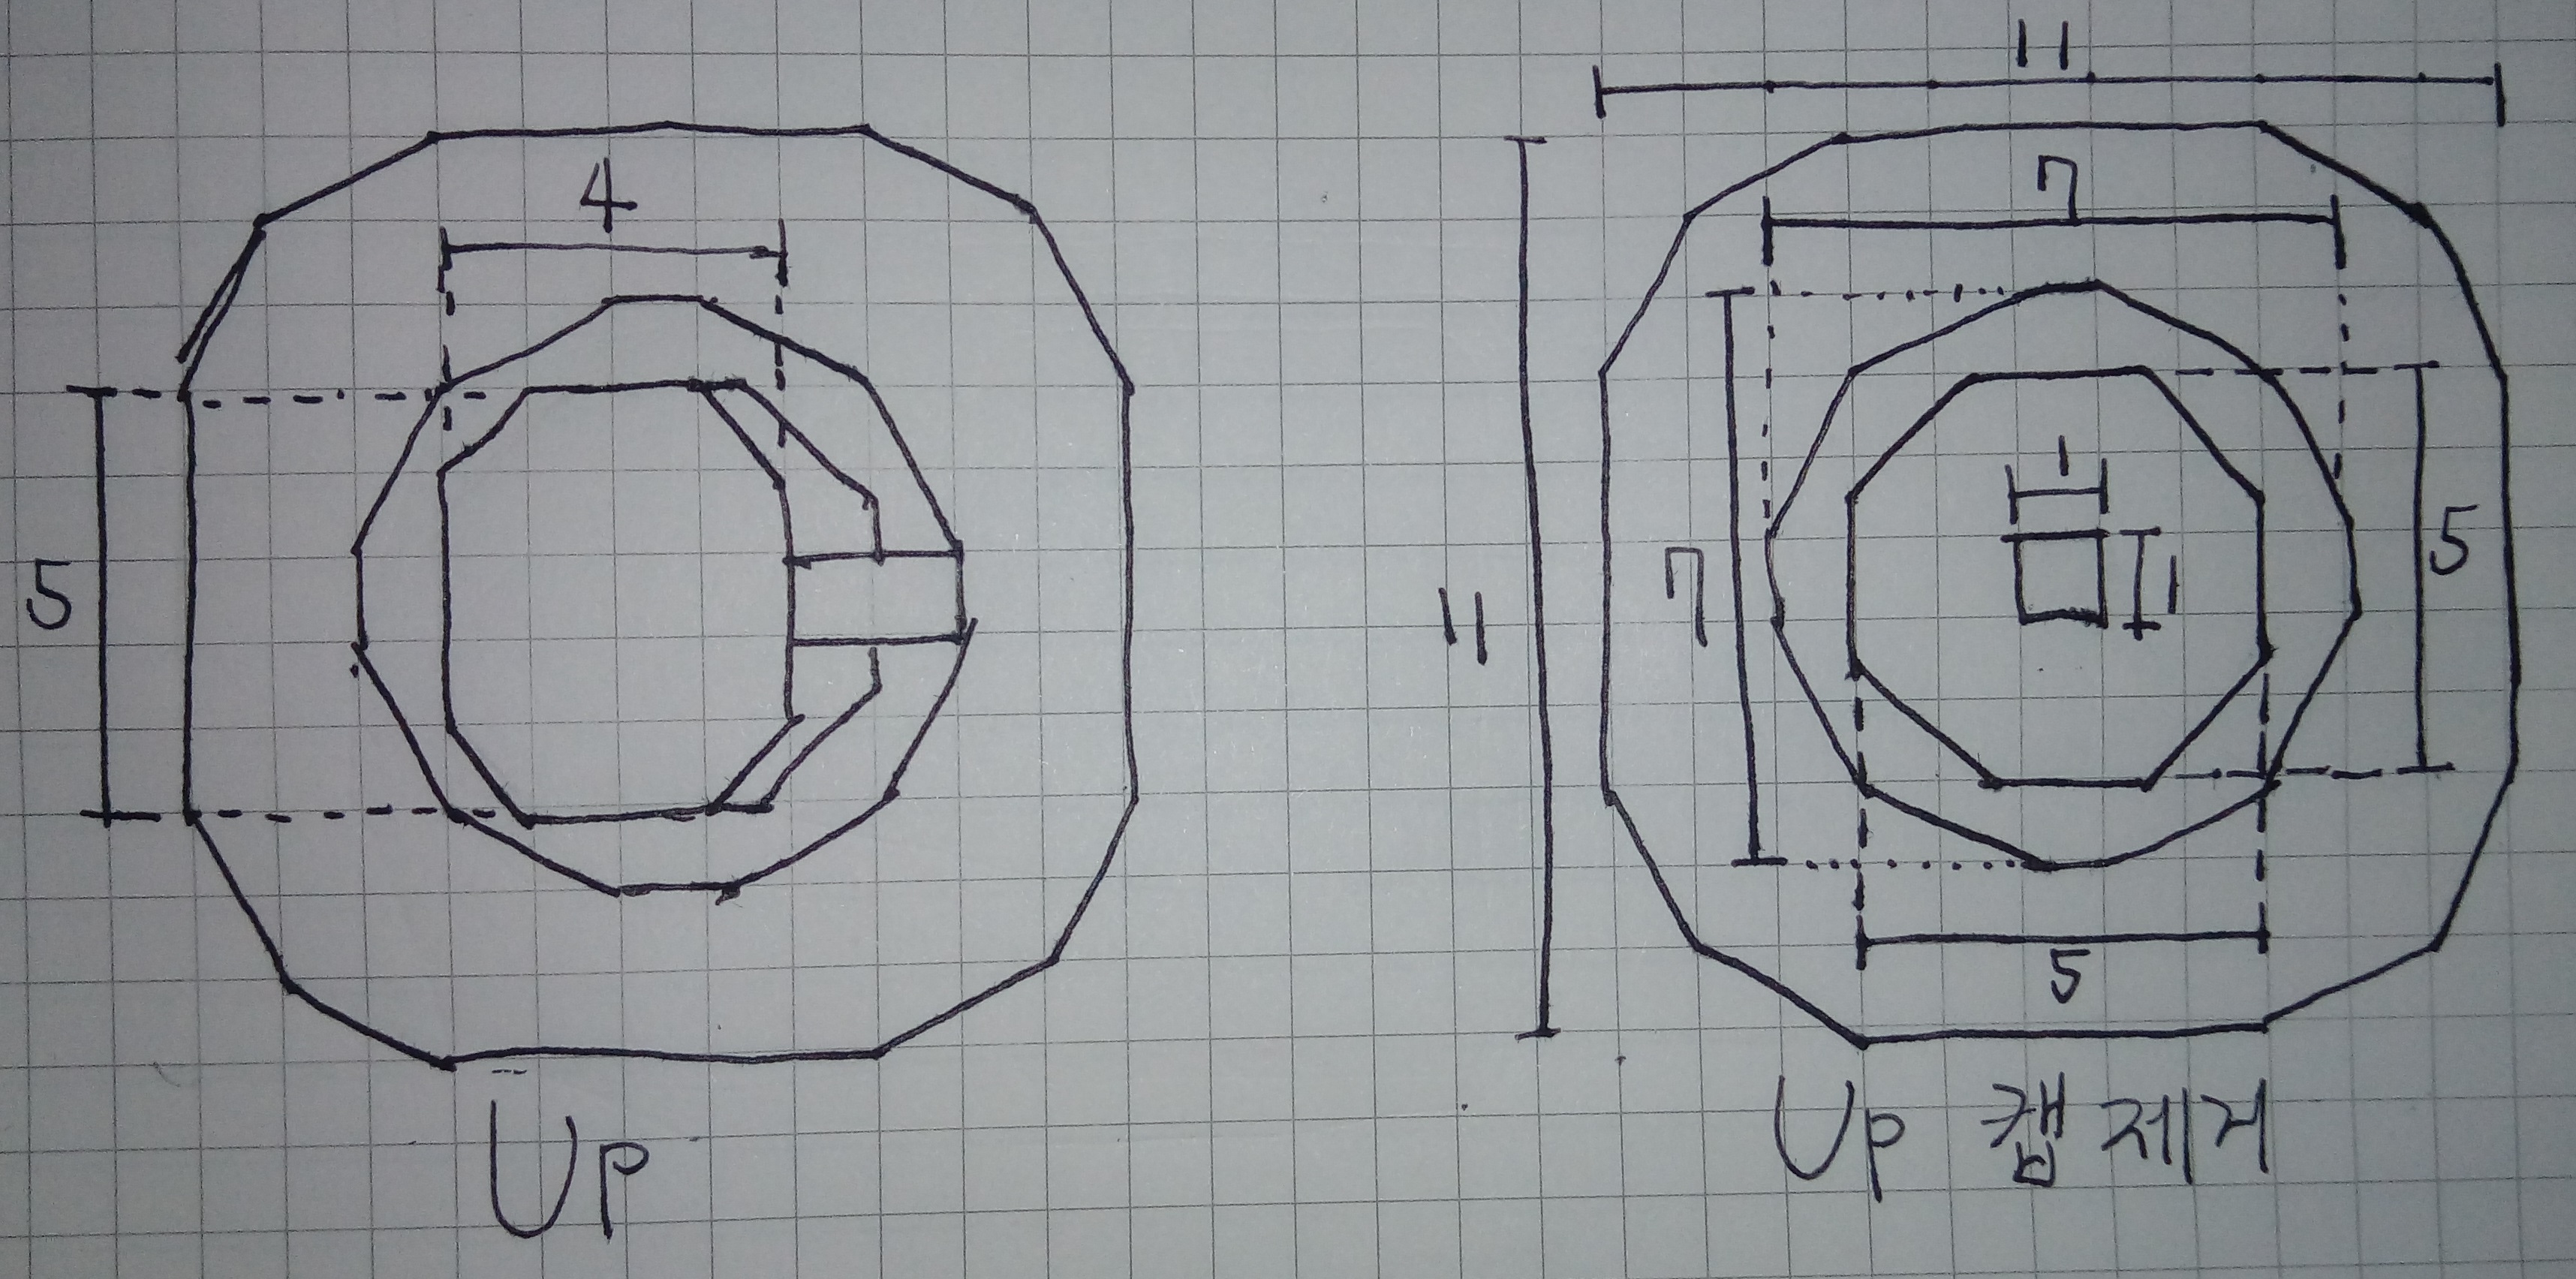 4
5
Up
11
7
11
7
1
1
5
5
Up 캡 제거